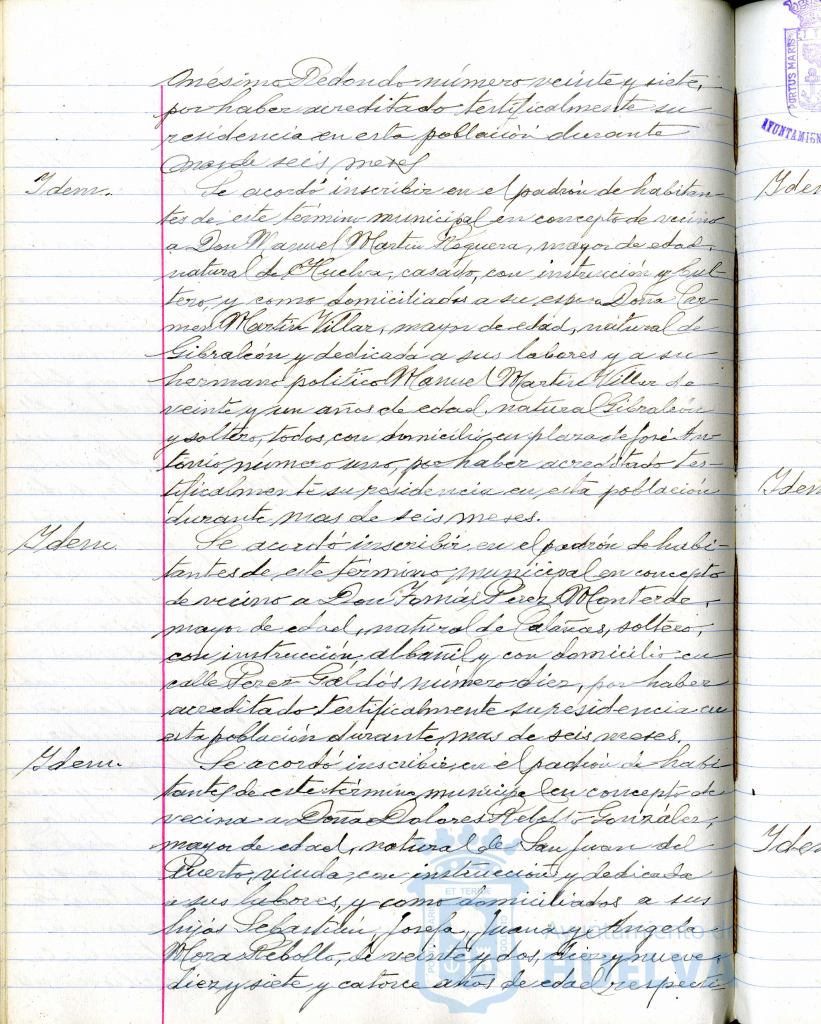 Onésimo Redondo número veinte y siete,
por haber acreditado testificalmente su
residencia en esta población durante
mas de seis meses
Idem. Se acordó inscribir en el padrón de habitan-
tes de este término municipal en concepto de vecino
a Don Manuel Martin Noguera, mayor de edad,
natural de Huelva, casado, con instrucción y
y como domiciliados a su esposa Doña Car-
men Martin Villar, mayor de edad, natural de
Gibraleón y dedicada a sus labores y a su
hermano politico Manuel Martin Villar de
veinte y un años de edad, natural Gibraleón
y soltero, todos, con domicilio en plaza de José An-
tonio número uno, por haber acreditado tes-
tificalmente su residencia en esta población
durante mas de seis meses.
Idem. Se acordó inscribir en el padrón de habi-
tantes de este término municipal en concepto
de vecino a Don Tomás Perez Monterde,
mayor de edad, natural de Calañas, soltero,
con instrucción, albañil y con domicilio en
calle Perez Galdós número diez, por haber
acreditado testificalmente su residencia en
esta población durante mas de seis meses.
Idem. Se acordó inscribir en el padrón de habi-
tantes de este término municipal en concepto de
vecina a Doña Dolores Rebollo González,
mayor de edad, natural de San Juan del
Puerto, viuda, con instrucción y dedicada
a sus labores, y como domiciliados a sus
hijos Sebastian, Josefa, Juana y Angela
Mora Rebollo, de veinte y dos, diez y nueve,
diez y siete y catorce años de edad respecti-
PORTUS MARIS
AYUNTAMIEN
Iden
Idem
Iden
Ayuntamiento d
HUELVA